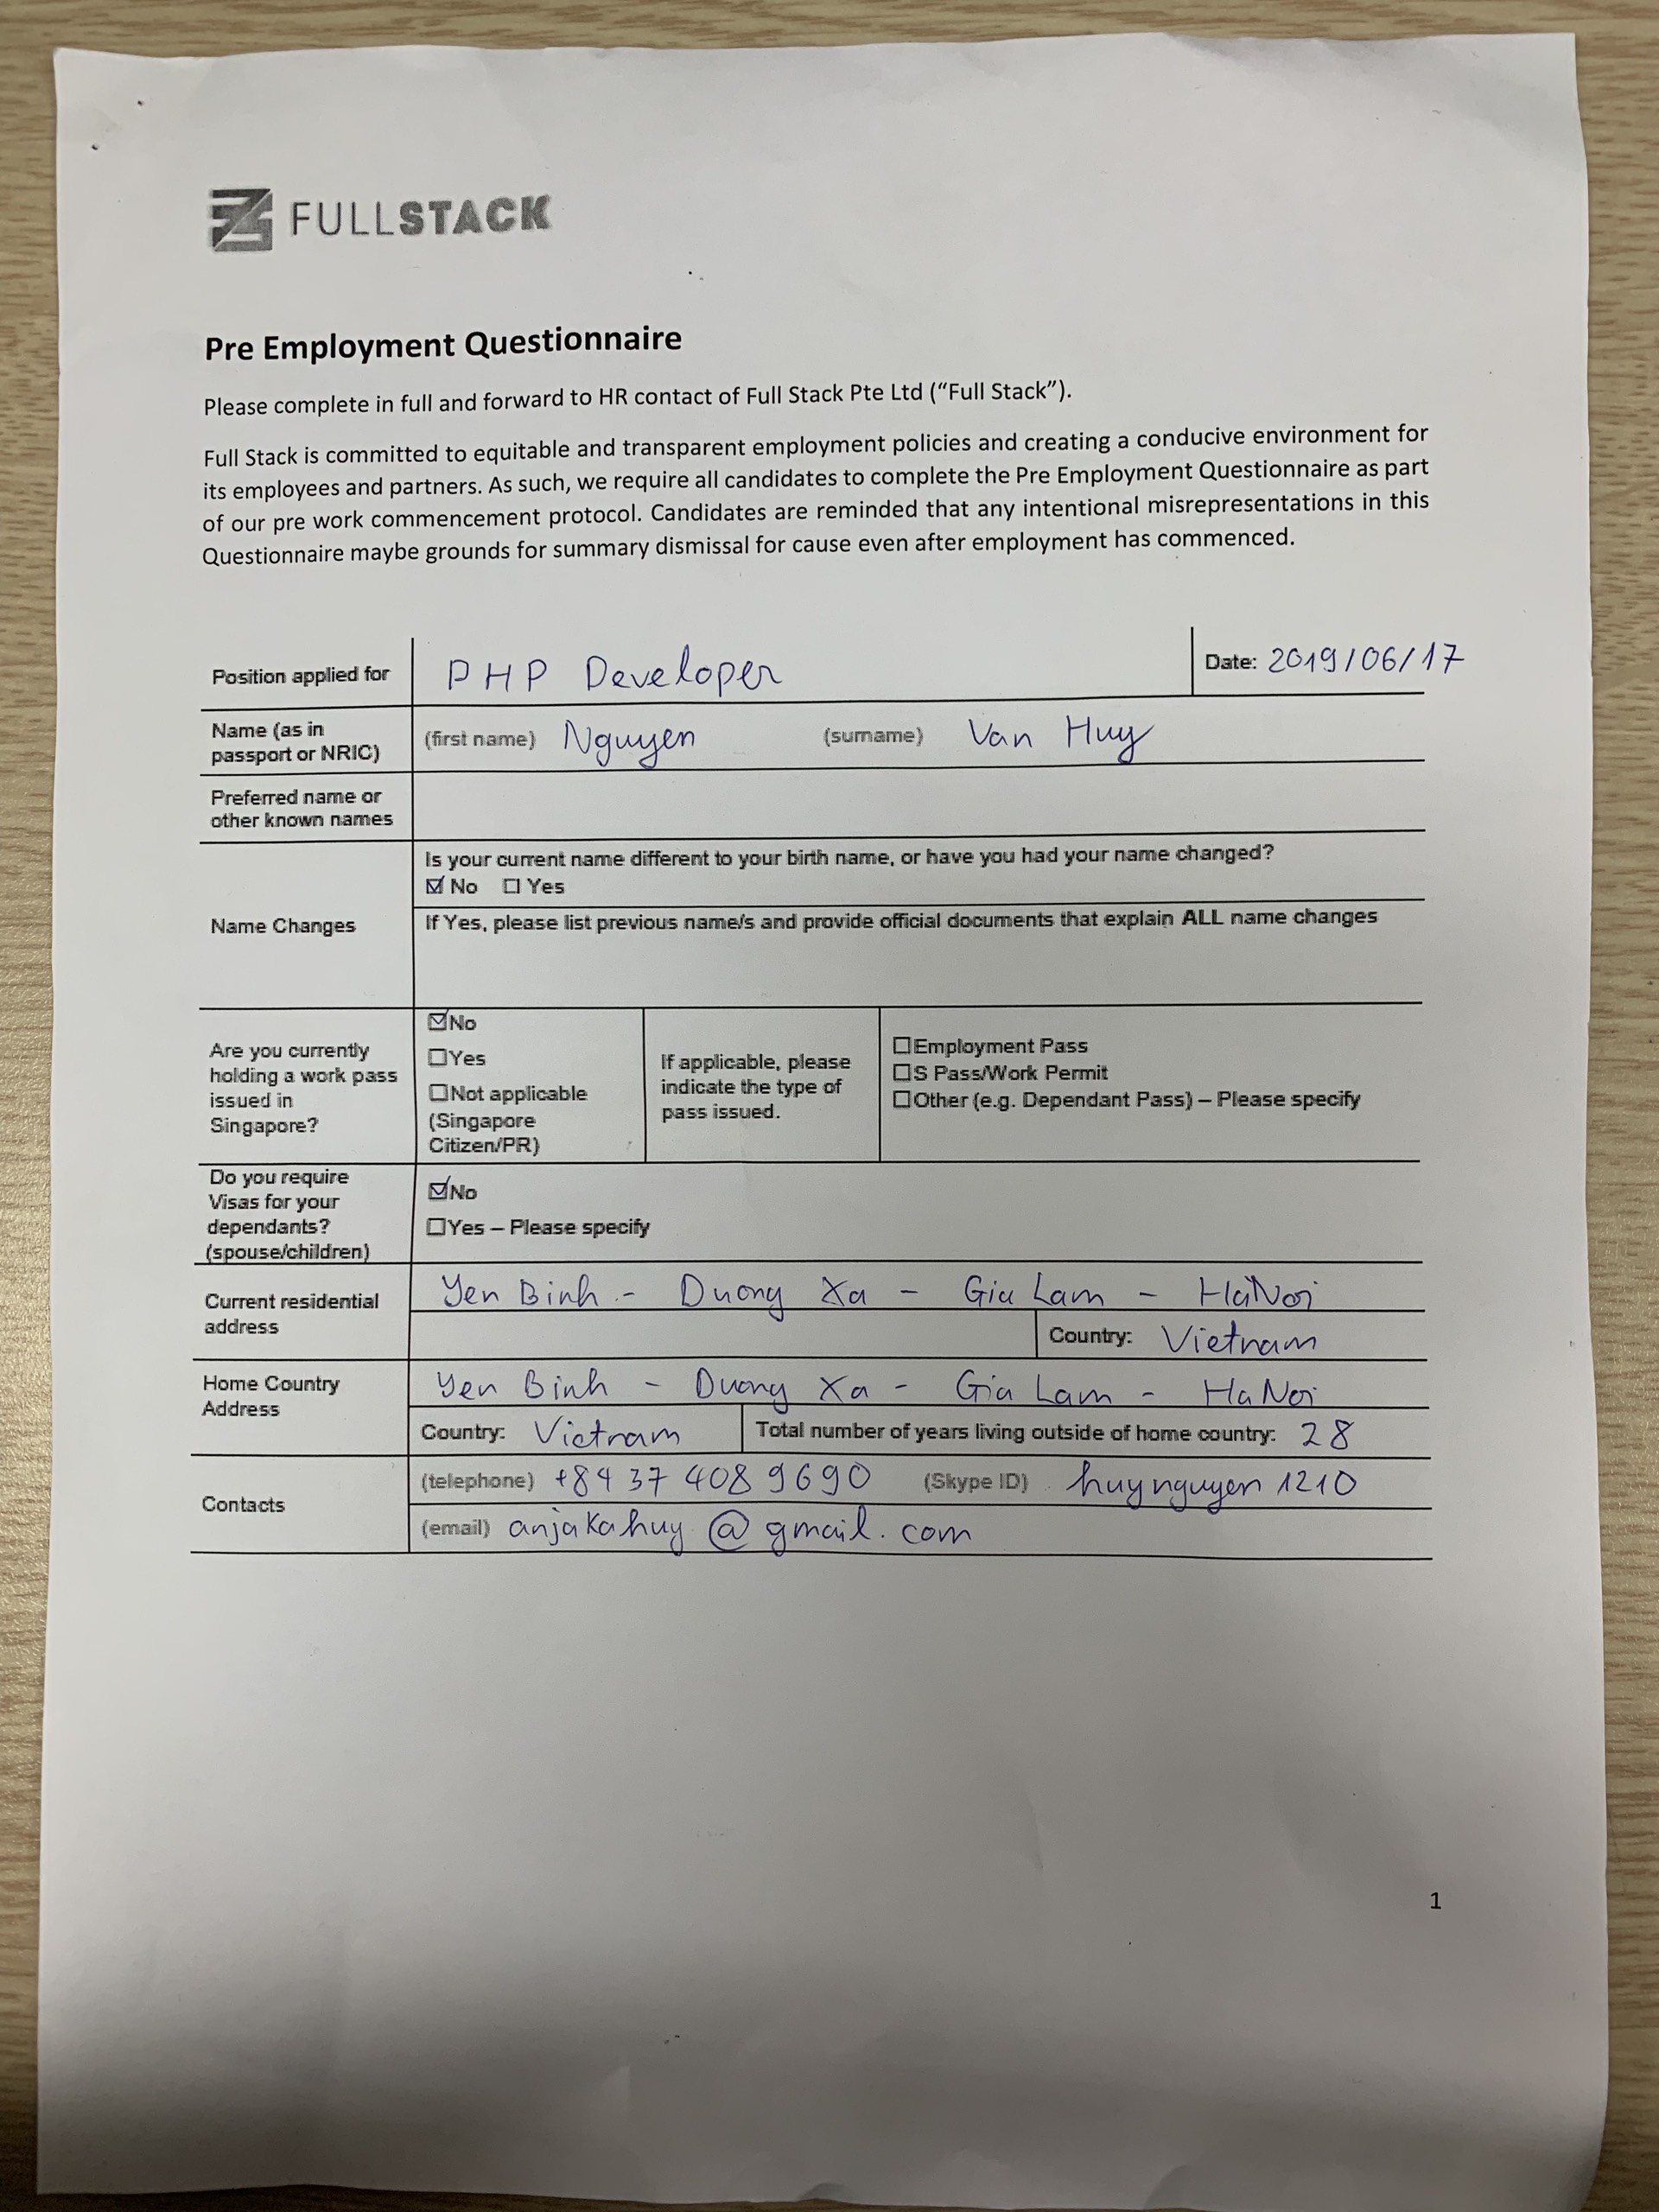 FULLSTACK
Pre Employment Questionnaire
Please complete in full and forward to HR contact of Full Stack Pte Ltd (“Full Stack”).
Full Stack is committed to equitable and transparent employment policies and creating a conducive environment for
its employees and partners. As such, we require all candidates to complete the Pre Employment Questionnaire as part
of our pre work commencement protocol. Candidates are reminded that any intentional misrepresentations in this
Questionnaire maybe grounds for summary dismissal for cause even after employment has commenced.
Position applied for PHP Developer Date: 2019/06/17
Name (as in
passport or NRIC)
(first name) Nguyen (surname) Van Huy
Preferred name or
other known names
Name Changes
Is your current name different to your birth name, or have you had your name changed?
☑ No ☐ Yes
If Yes, please list previous name/s and provide official documents that explain ALL name changes
Are you currently
holding a work pass
issued in
Singapore?
☑No
☐Yes
☐Not applicable
(Singapore
Citizen/PR)
If applicable, please
indicate the type of
pass issued.
☐Employment Pass
☐S Pass/Work Permit
☐Other (e.g. Dependant Pass) – Please specify
Do you require
Visas for your
dependants?
(spouse/children)
☑No
☐Yes – Please specify
Current residential
address
Yen Binh - Duong Xa - Gia Lam - HàNoi
Country: Vietnam
Home Country
Address
Yen Binh - Duong Xa - Gia Lam - HaNoi
Country: Vietnam Total number of years living outside of home country: 28
Contacts
(telephone) +84 37 408 9690 (Skype ID) huynguyen1210
(email) anjakahuy@gmail.com
1